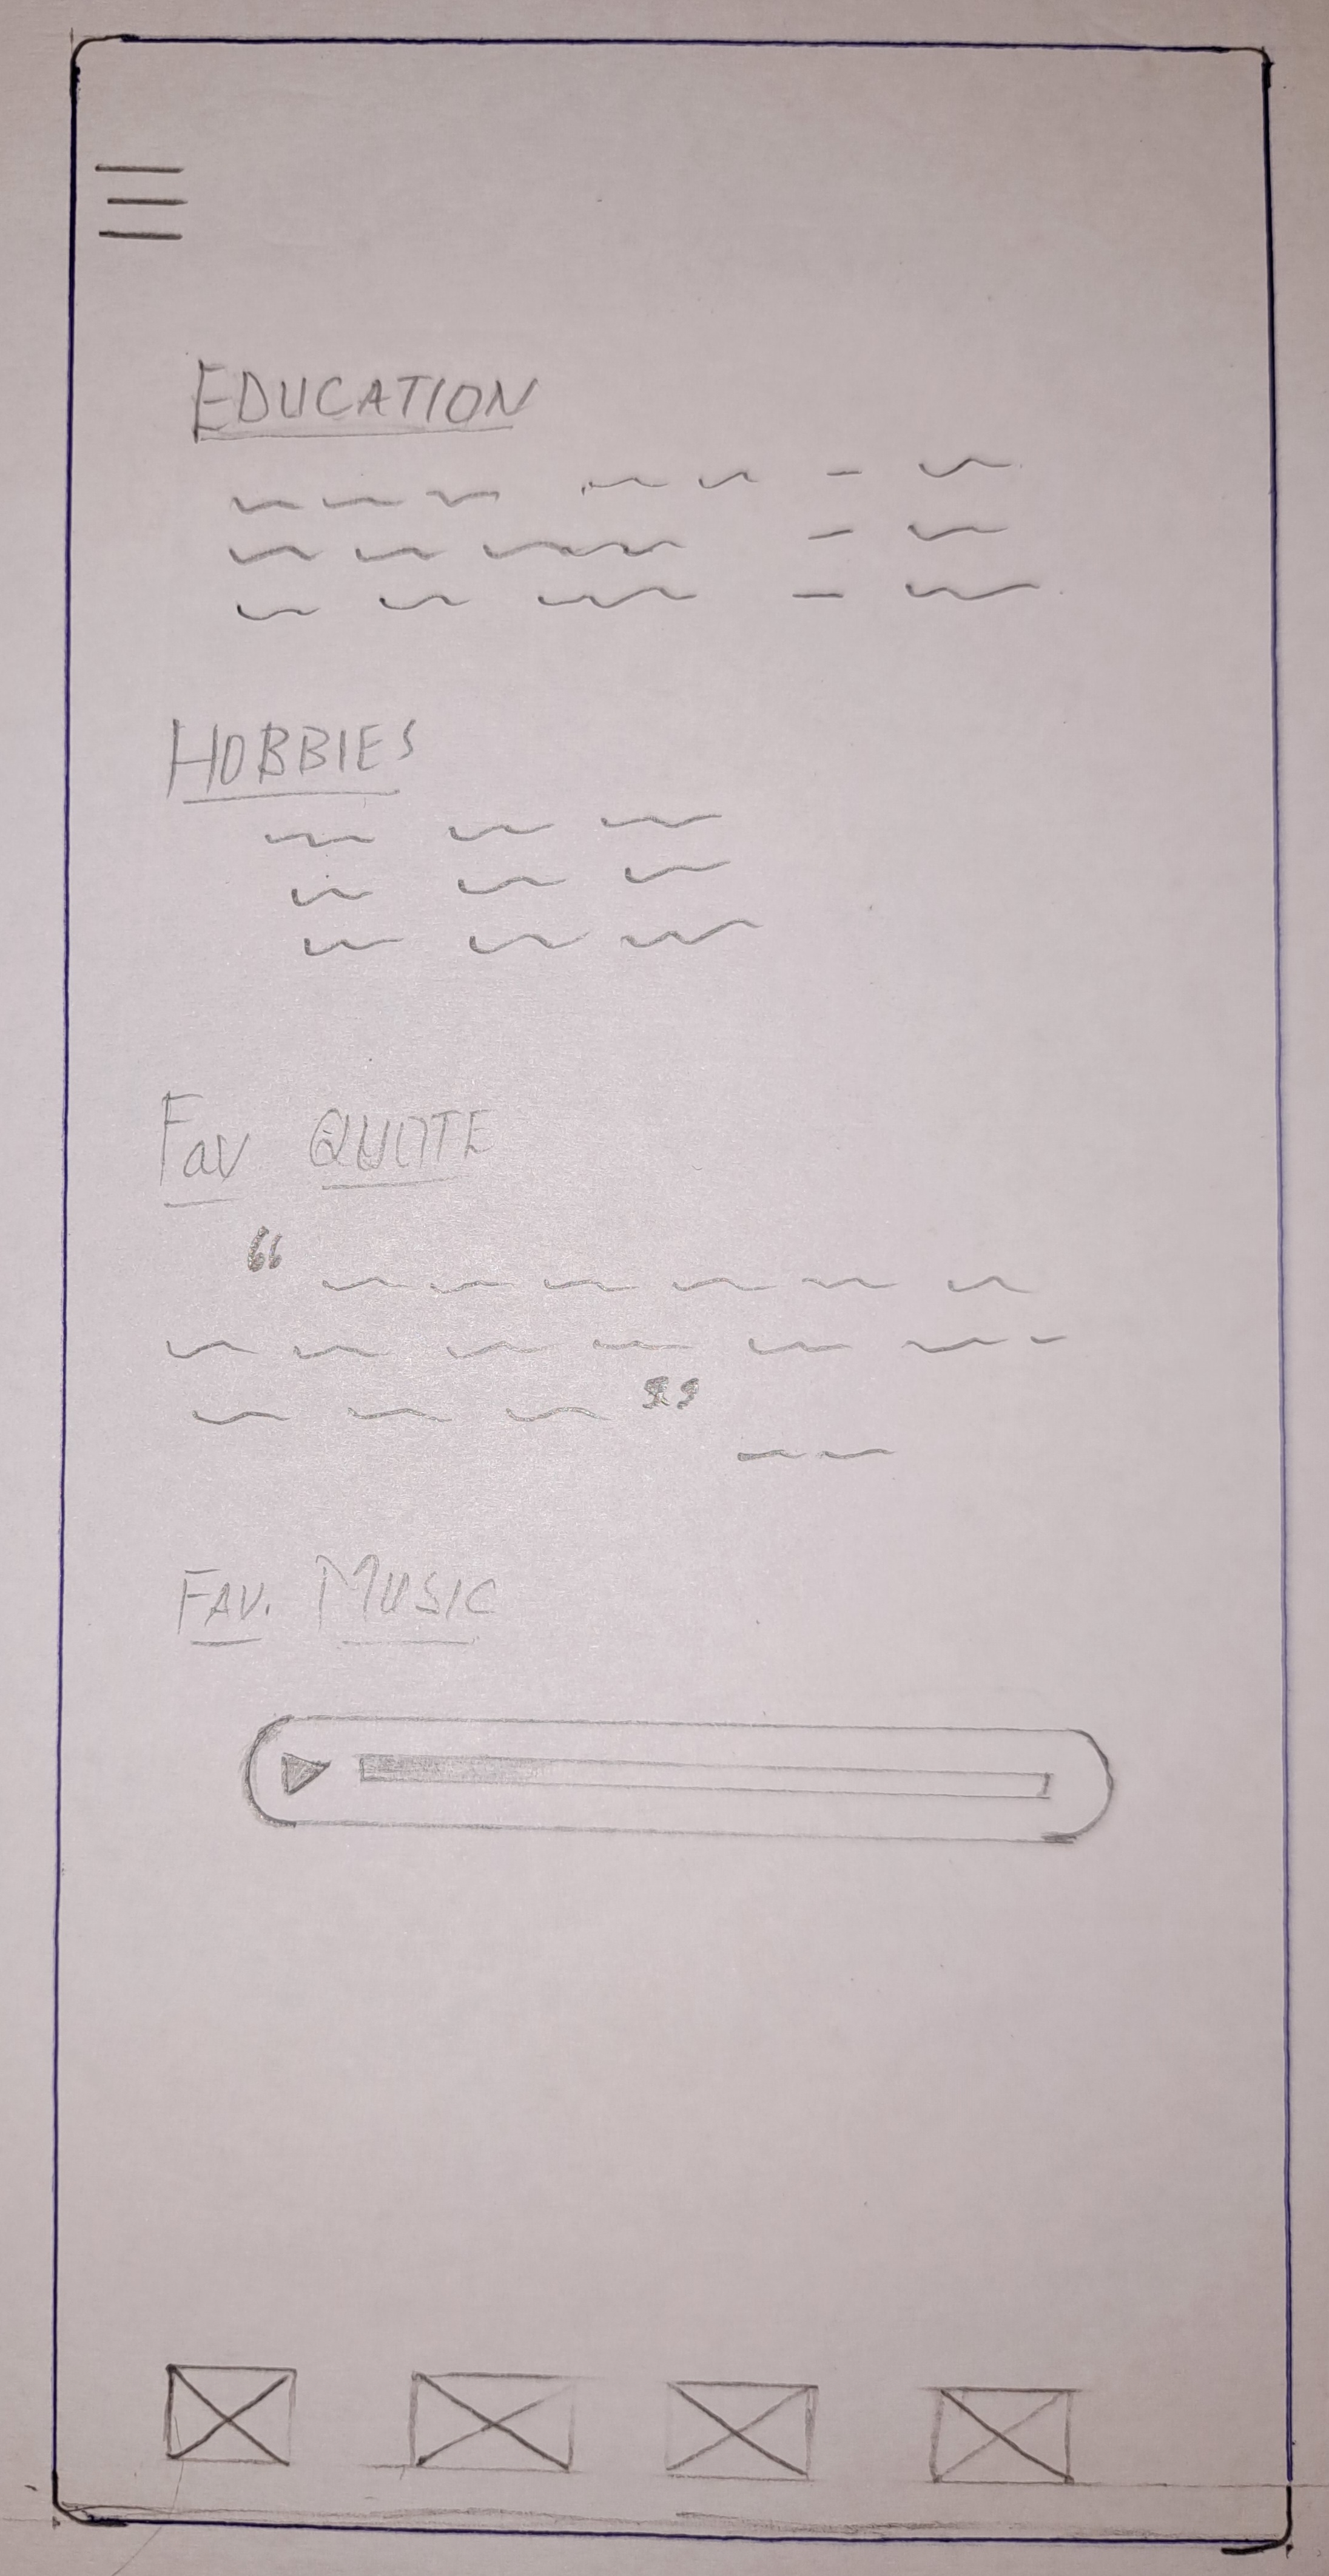 EDUCATION
HOBBIES
Fav QUOTE
“
”
FAV. MUSIC